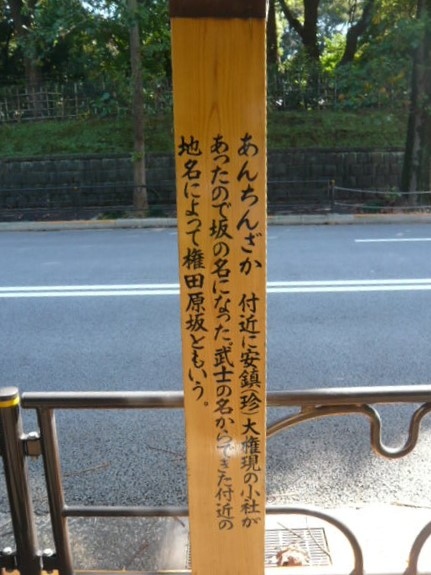 あんちんざか 付近に安鎮(珍)大権現の小社が
あったので坂の名になった。武士の名からできた付近の
地名によって権田原坂ともいう。